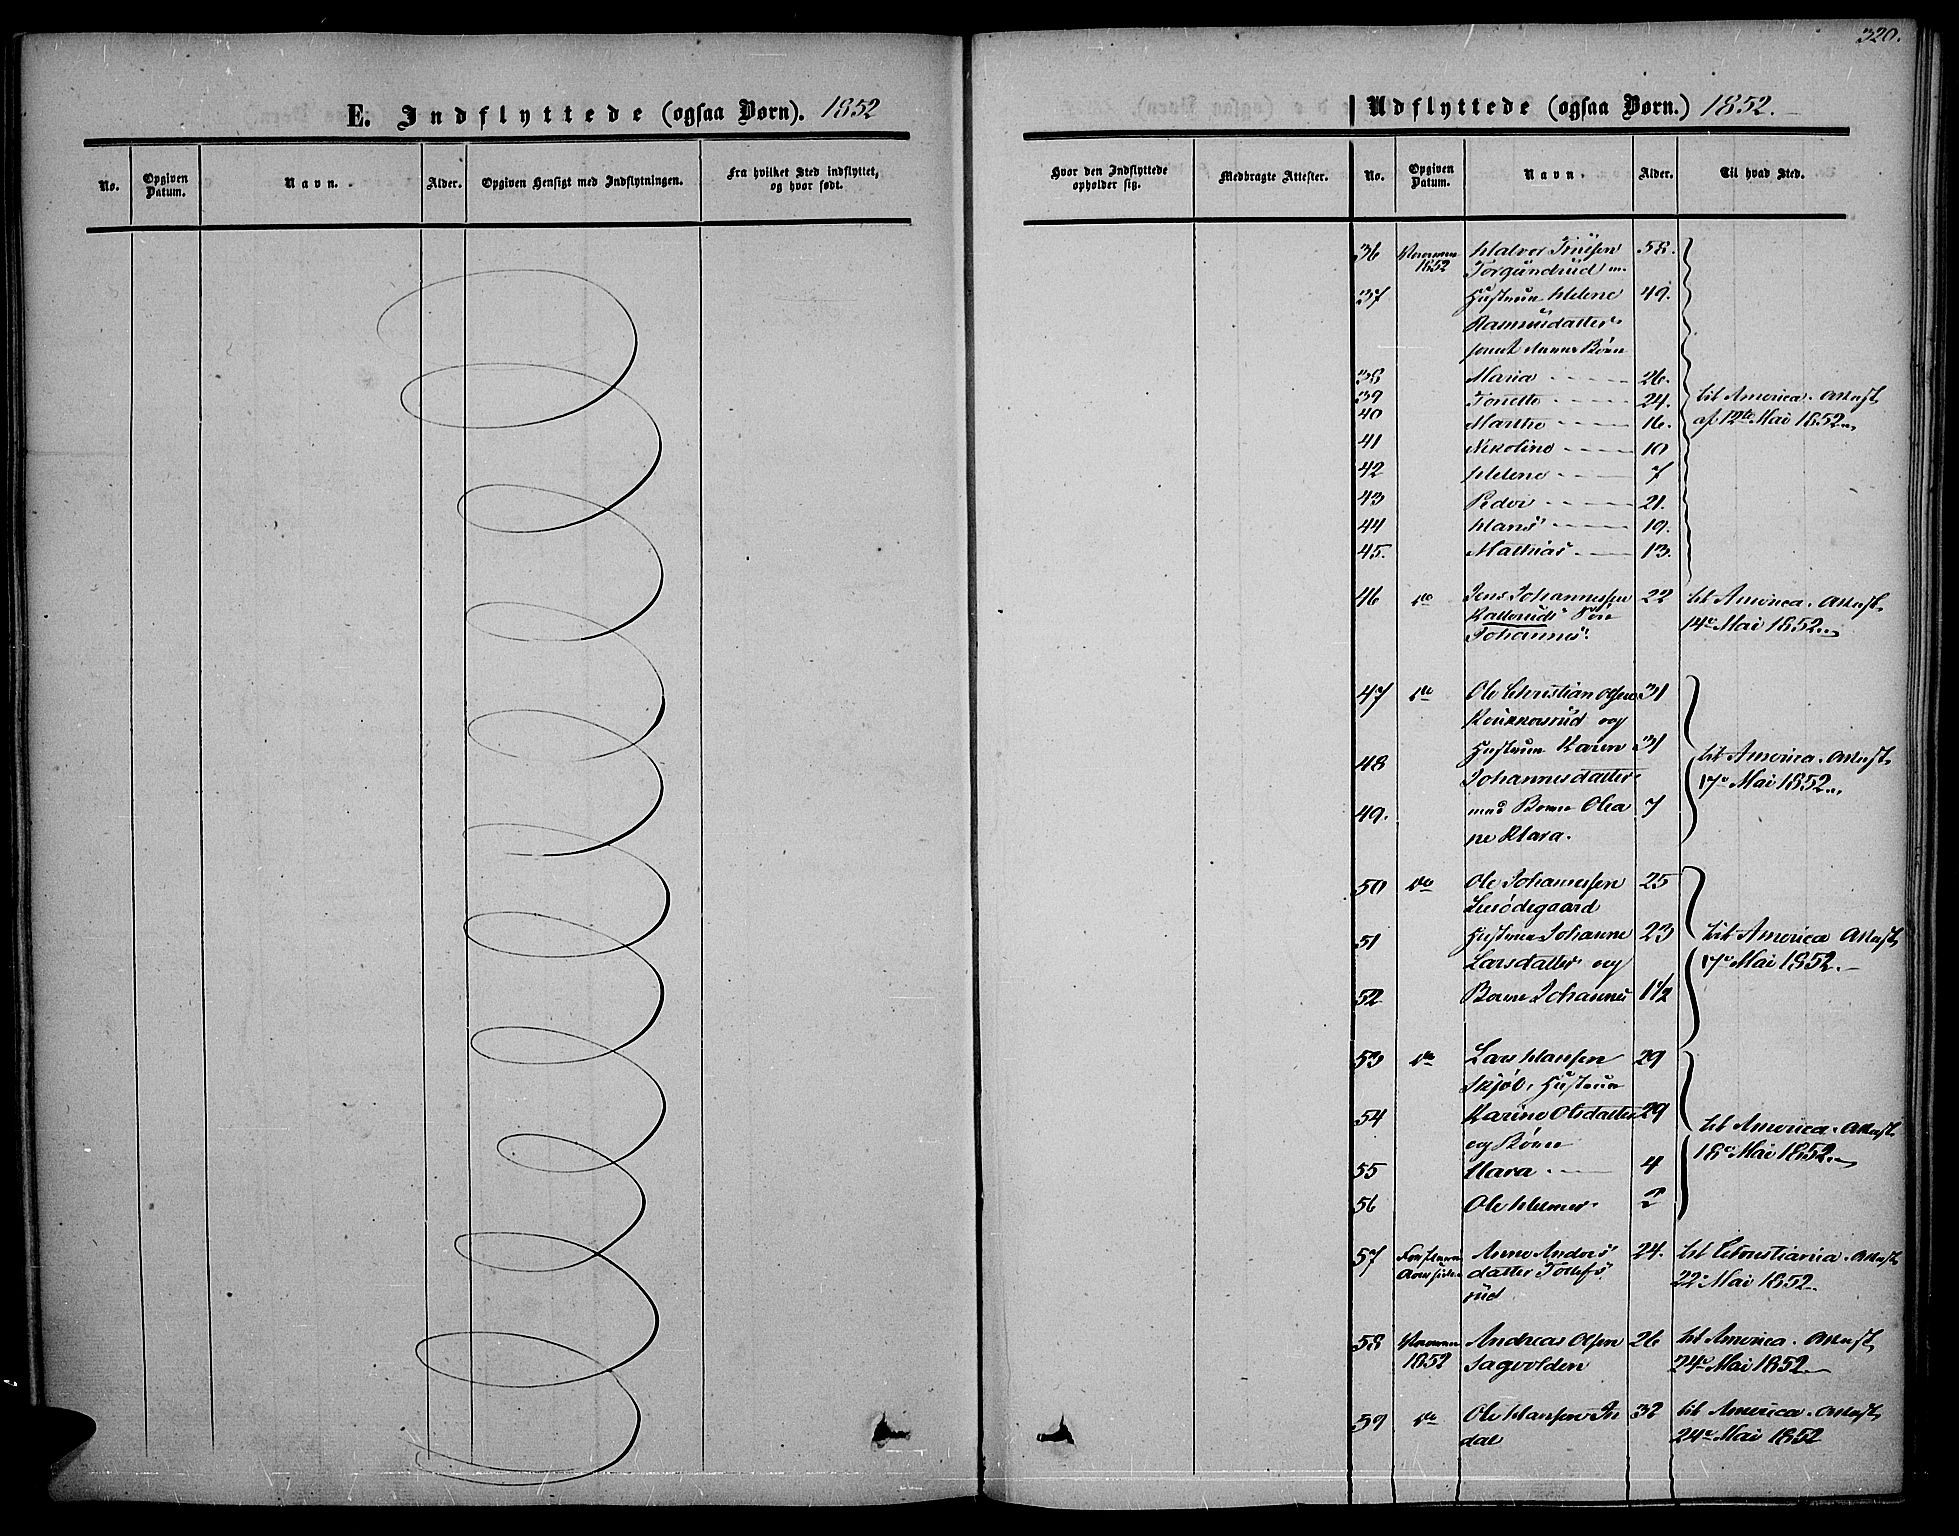 320.
E. Indflyttede (ogsaa Børn). 1852
No.
Opgiven Datum.
Navn.
Alder.
Opgiven Hensigt med Indflytningen.
Fra hvilket Sted indflyttet, og hvor født.
Udflyttede (ogsaa Børn.) 1852.
Hvor den Indflyttede opholder sig.
Medbragte Attester.
No.
Opgiven Datum.
Navn.
Alder.
Til hvad Sted.
36 1852 Halvor 58.
Torgundrud m.
37 Hustrue Helene 49.
samt deres Børn
38 Maria 26.
39 24. til America. Attest
40 Marthe 16. af 12te Mai 1852.
41 Nikoline 10
42 Helene 7
43 Peder 21.
44 Hans 19.
45. Mathias 13.
46 do Jens Johannessen 22 til America. Attest
14e Mai 1852.
Johannes.
47 do Ole Christian Olsen 31
og
48 Hustrue Karen 31 til America. Attest
Johannesdatter 17e Mai 1852.
49. med Barn Olea 7
ne Klara.
50 do Ole Johannessen 25
51 Hustrue Johanne 23 til America Attest
Larsdatter og 17e Mai 1852.
52 Barn Johannes 1½
53 do Lars Hansen 29
Skjøl, Hustrue
54 Karine Olsdatter 29 til America. Attest
og Børn 18e Mai 1852.
55 Klara 4
56 Ole Helmer 2
57 Anne Anders 24. til Christiania. Attest
datter Tollefs 22e Mai 1852.
rud
58 Andreas Olsen 26 til America. Attest
1852 Sagvolden 24e Mai 1852.
59 do Ole Hansen 32 til America. Attest
dal 24e Mai 1852